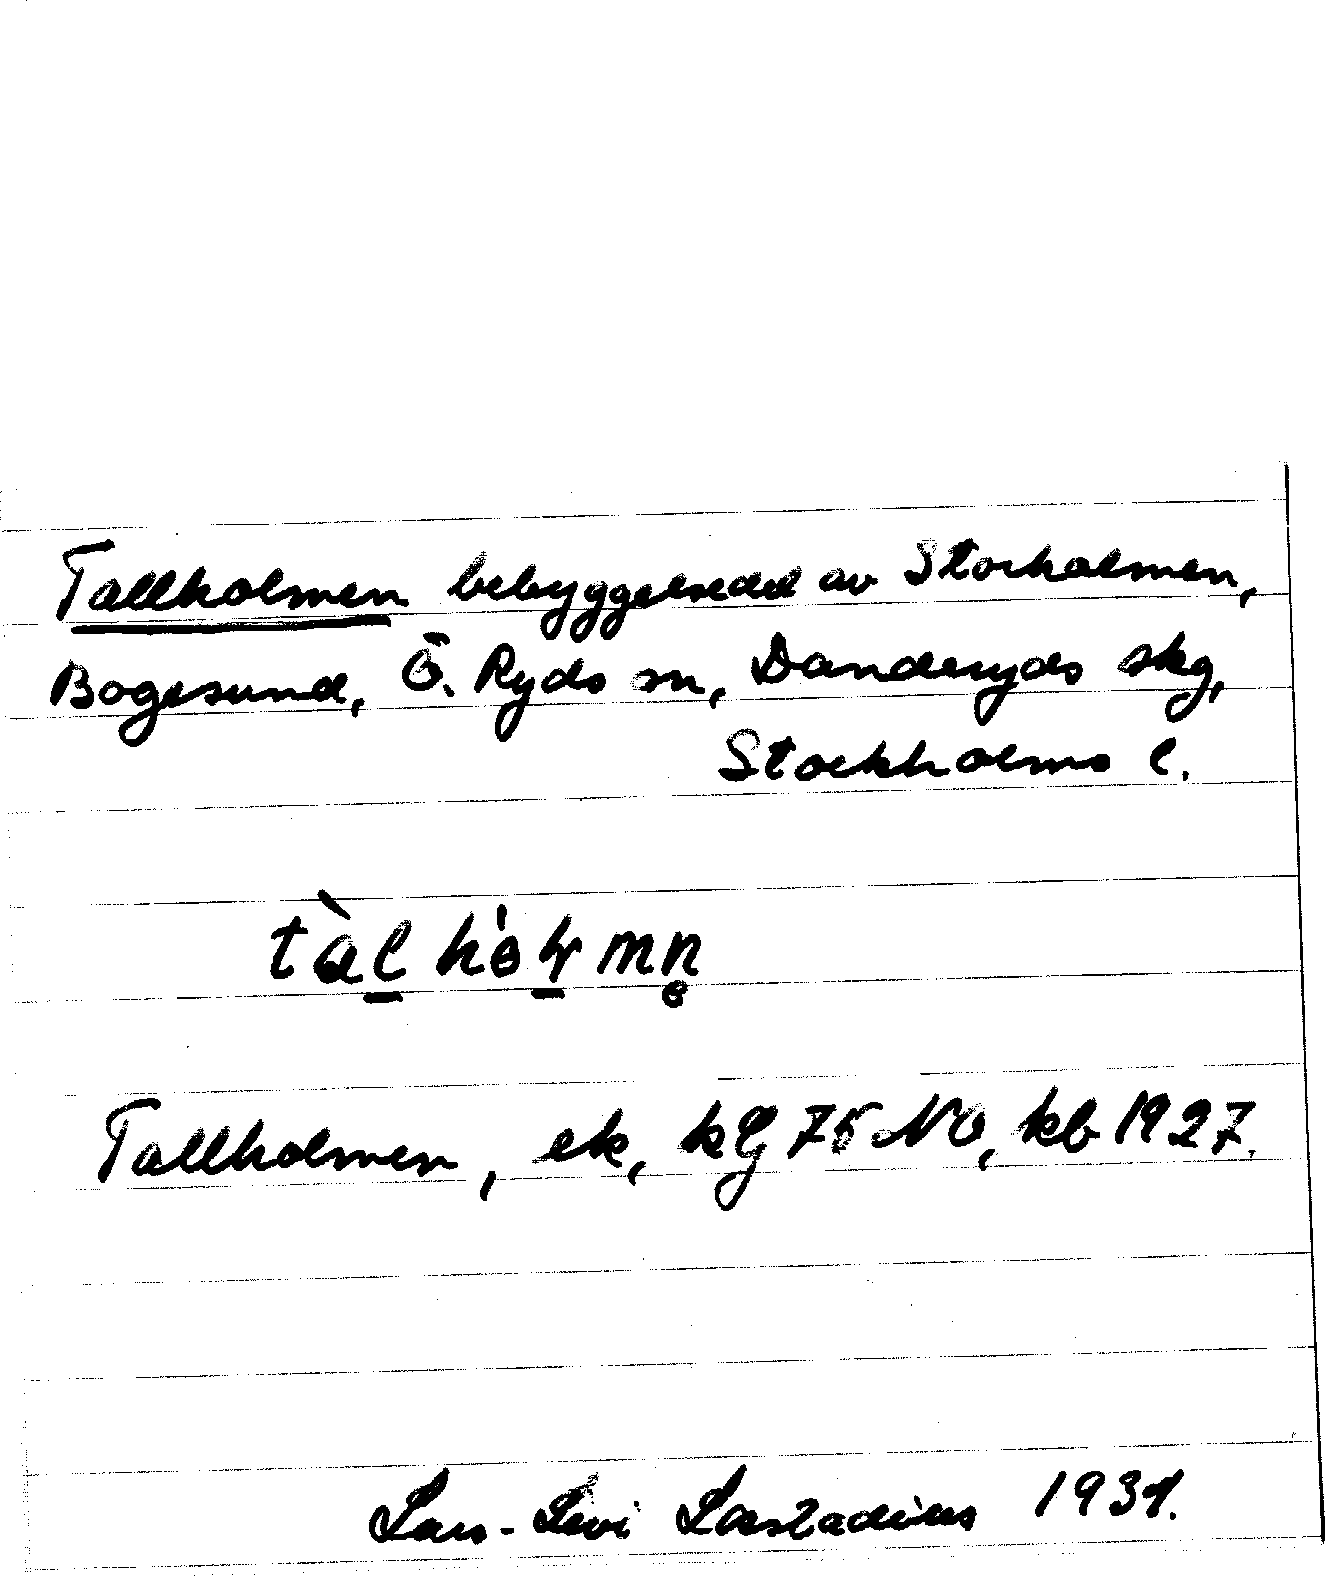 Tallholmen bebyggelsedel av Storholmen,
Bogesund, Ö. Ryds sn, Danderyds skg,
Stockholms l.
Tallholmen, ek, kG 75 NO, kb 1927.
Lars-Levi Læstadius 1931.